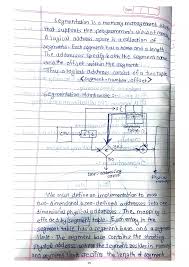 Segmentation is a memory management scheme
that supports the programmer's view of memory.
A logical address space is a collection of
segments. Each segment has a name and a length.
The addresses specify both the segment name
and the offset within the segment.
Thus a logical address consist of a two tuple
<segment-number, offset>
Segmentation Hardware :-
CPU
We must define an implementation to map
two-dimensional user-defined addresses into one
dimensional physical addresses. The mapping is
effected by segment table. Each entry in the
segment table has a segment base and a segment
limit. The segment base contains the starting
physical address where the segment resides in memory
and segment limit specifies the length of segment.